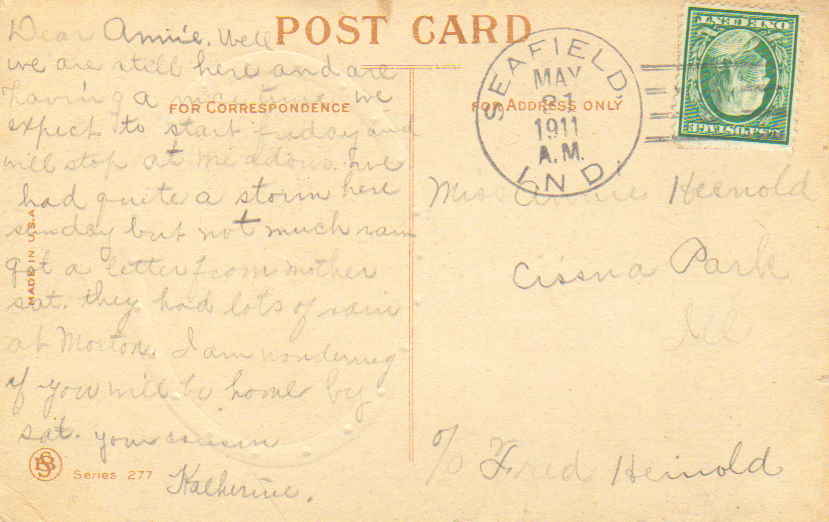 POST CARD
FOR CORRESPONDENCE
FOR ADDRESS ONLY
Dear Annie. Well
we are still here and are
having a nice time we
expect to start friday and
will stop at Meadows. we
had quite a storm here
sunday but not much rain
got a letter from mother
sat. they had lots of rain
at Morton. I am wondering
if you will be home by
sat. your cousin
Katherine.
MADE IN U.S.A.
Series 277
SEAFIELD,
MAY
31
1911
A.M.
IND.
ONE CENT
U.S. POSTAGE
Miss Annie Heinold
Cissna Park
Ill
c/o Fred Heinold